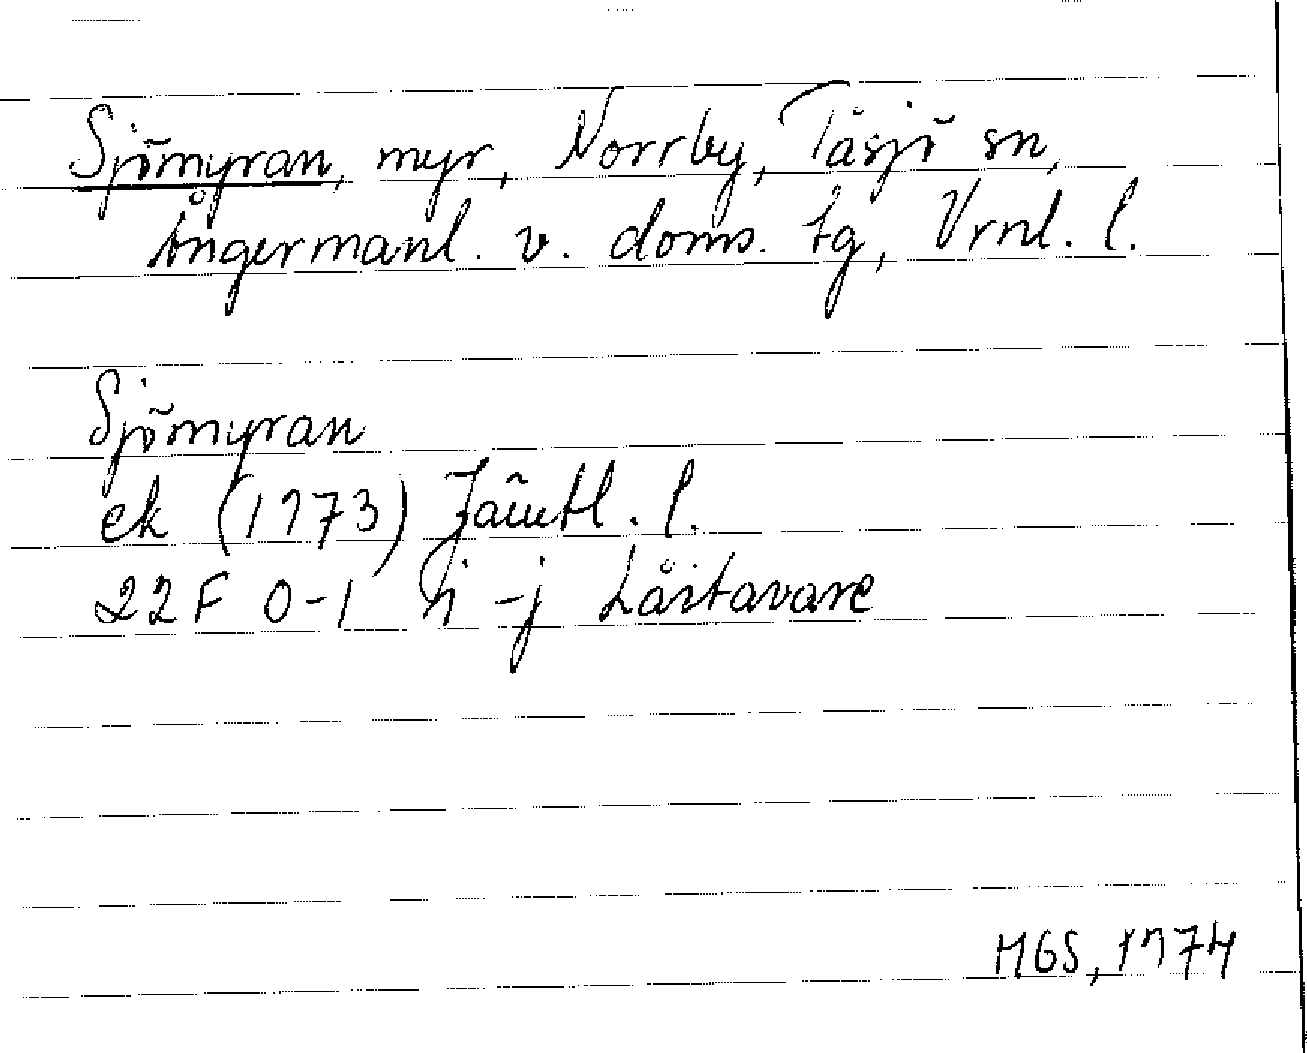 Sjömyran, myr, Norrby, Tåsjö sn,
Ångermanl. v. doms. tg, Vrnl. l.
Sjömyran
ek (1973) Jämtl. l.
22F 0-1 i-j Låitavare
MGS, 1974